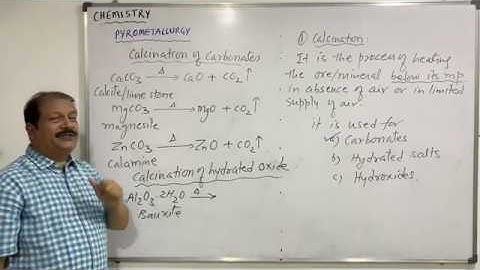 CHEMISTRY
PYROMETALLURGY
Calcination of Carbonates
CaCO₃ —Δ→ CaO + CO₂↑
Calcite/lime stone
MgCO₃ —Δ→ MgO + CO₂↑
magnesite
ZnCO₃ —Δ→ ZnO + CO₂↑
calamine
Calcination of hydrated oxide
Al₂O₃·2H₂O —Δ→
Bauxite
① Calcination:
It is the process of heating
the ore/mineral below its mp
in absence of air or in limited
supply of air.
it is used for
a) Carbonates
b) Hydrated salts
c) Hydroxides.